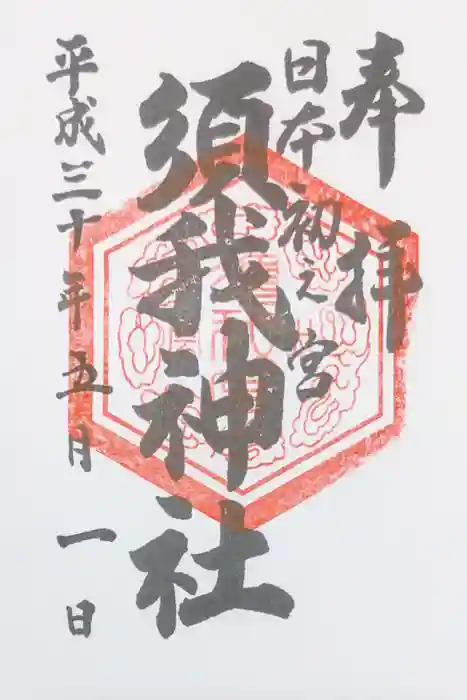 奉拝
日本初之宮
須我神社
平成三十年五月一日